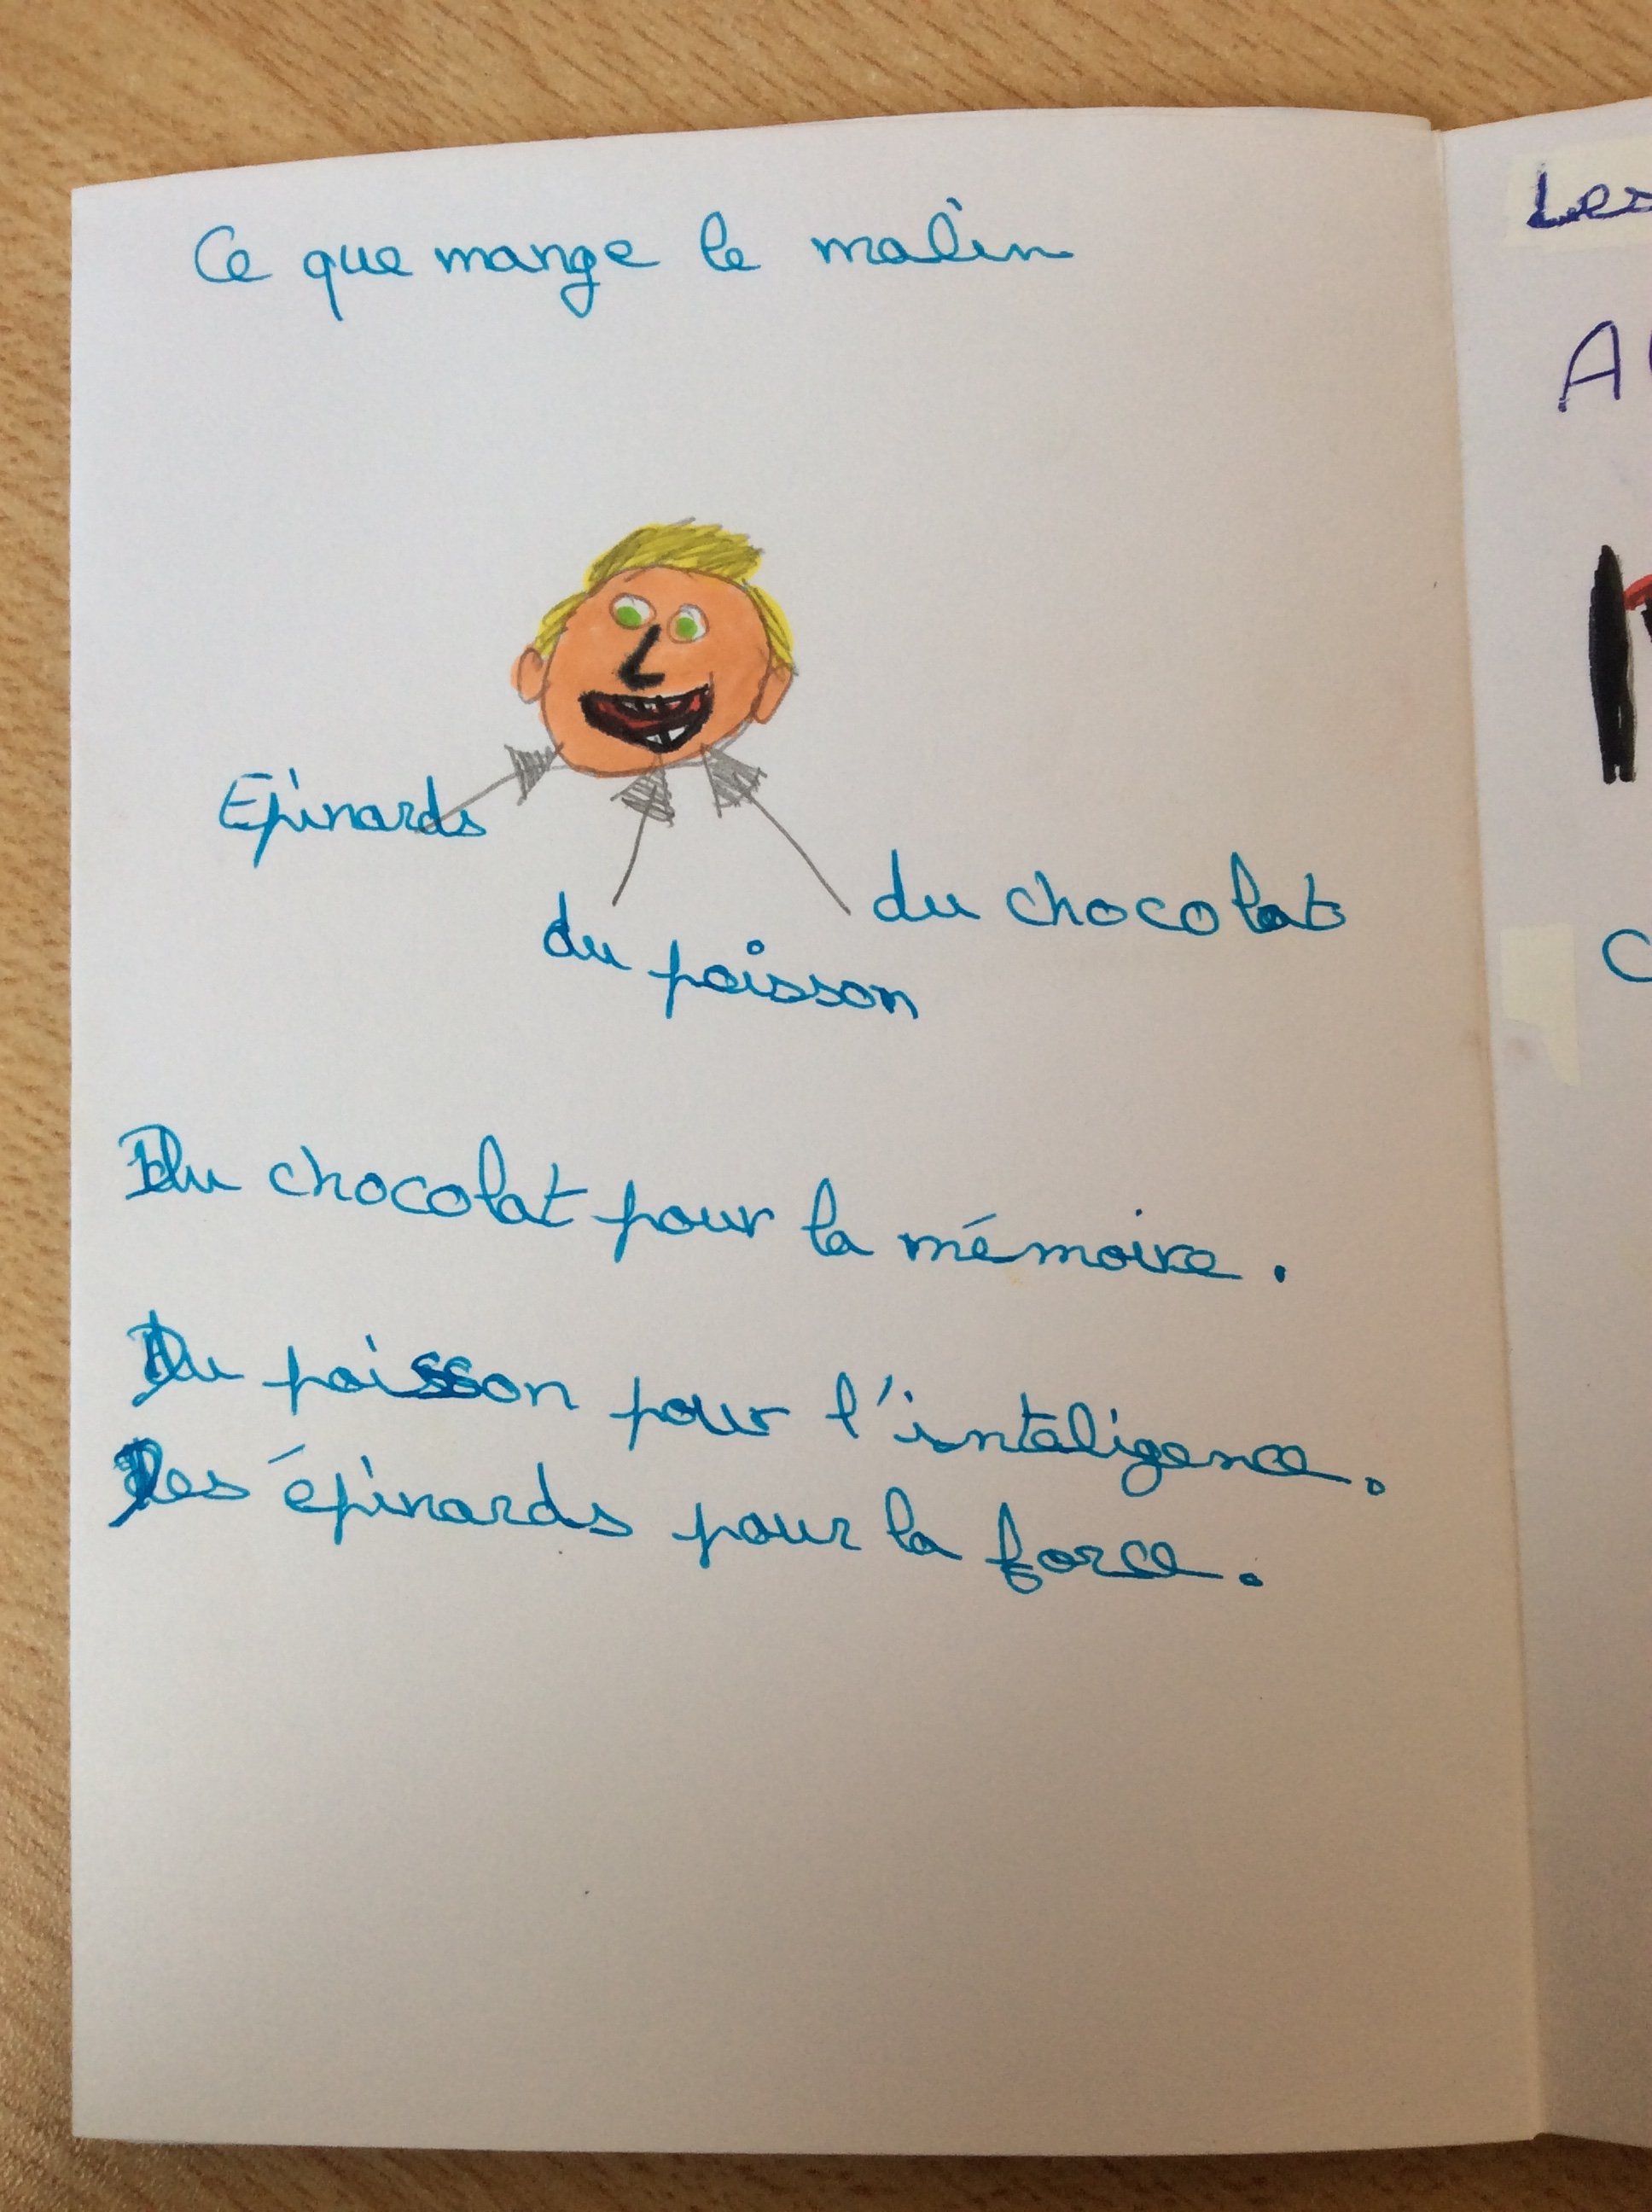 Ce que mange le malin
Epinards
du chocolat
du poisson
Du chocolat pour la mémoire.
Du poisson pour l'inteligence.
Des épinards pour la force.
Les